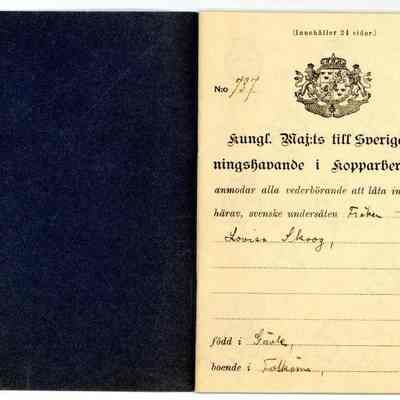 (Innehåller 24 sidor.)
N:o 737
Kungl. Maj:ts till Sverige
ningshavande i Kopparber
anmodar alla vederbörande att låta in
härav, svenske undersåten Fröken
Lovisa Skoog,
född i Gävle,
boende i